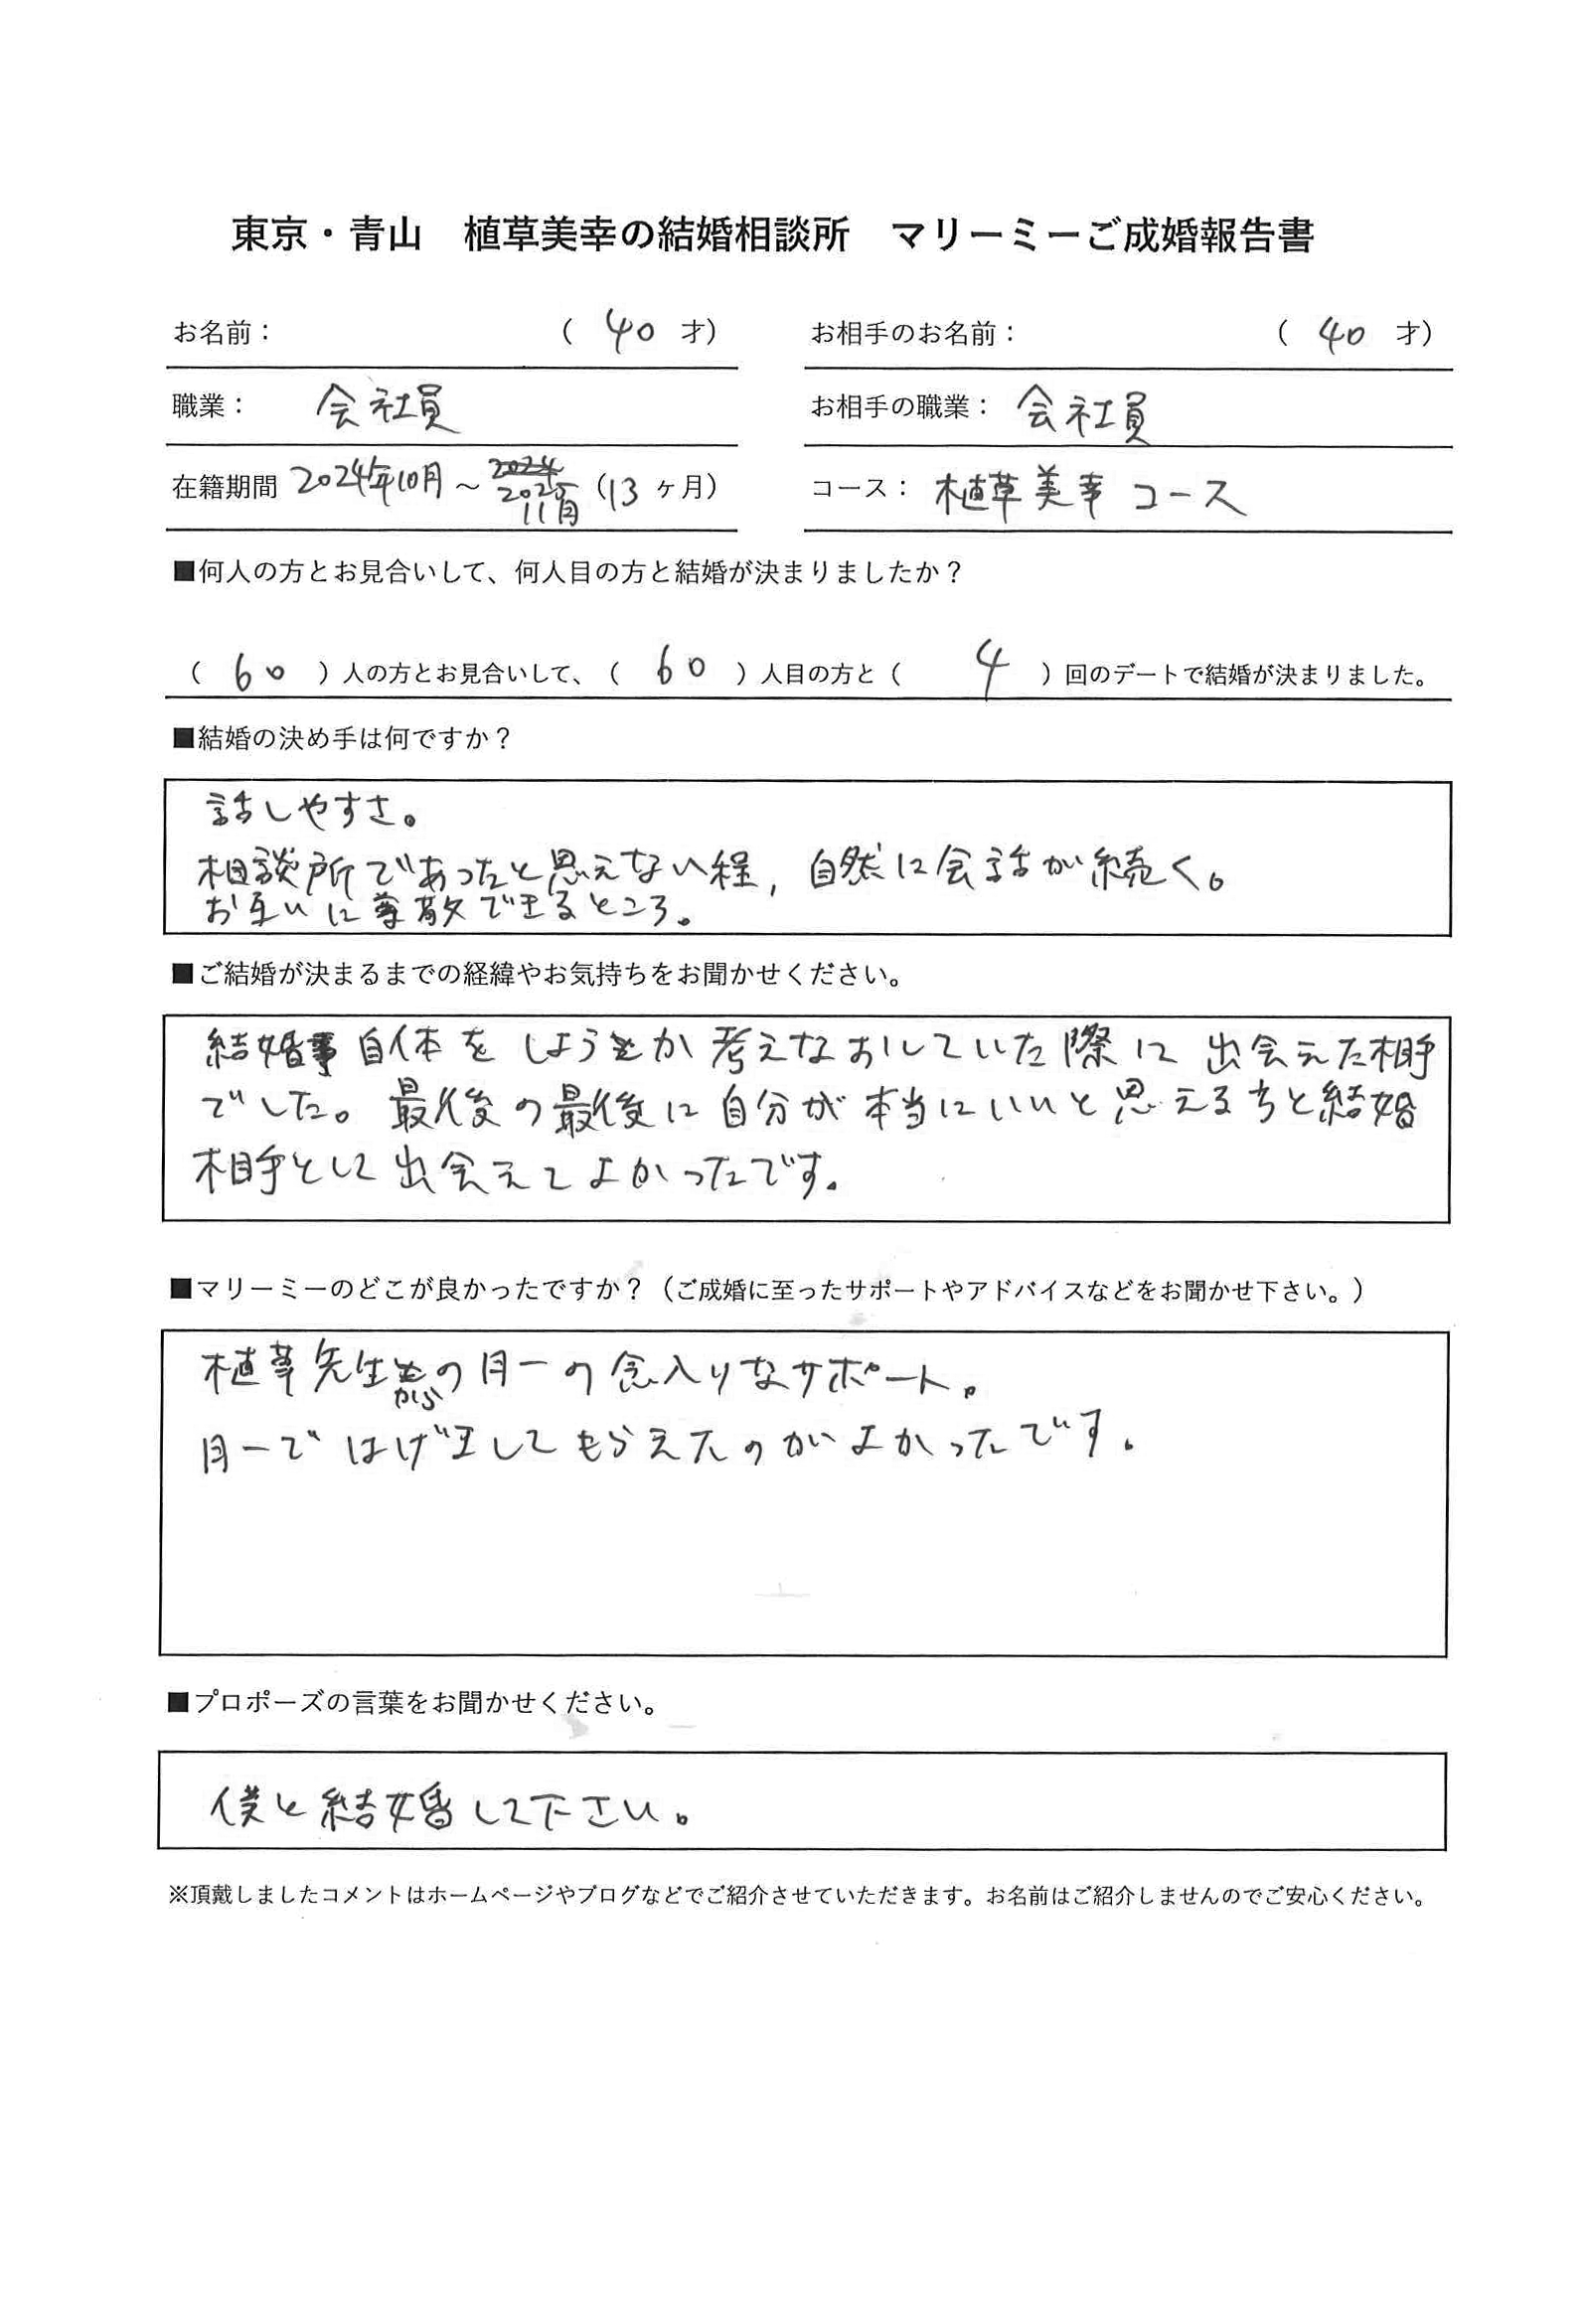 東京・青山　植草美幸の結婚相談所　マリーミーご成婚報告書
お名前：　（ 40 才）　お相手のお名前：　（ 40 才）
職業：　会社員　お相手の職業：　会社員
在籍期間 2024年10月 ～ 2025 11月 （13 ヶ月）　コース：　植草美幸 コース
■何人の方とお見合いして、何人目の方と結婚が決まりましたか？
（ 60 ）人の方とお見合いして、（ 60 ）人目の方と（ 4 ）回のデートで結婚が決まりました。
■結婚の決め手は何ですか？
話しやすさ。
相談所であったと思えない程, 自然に会話が続く。
お互いに尊敬できるところ。
■ご結婚が決まるまでの経緯やお気持ちをお聞かせください。
結婚自体をしようか考えなおしていた際に出会えた相手
でした。最後の最後に自分が本当にいいと思える方と結婚
相手として出会えてよかったです。
■マリーミーのどこが良かったですか？（ご成婚に至ったサポートやアドバイスなどをお聞かせ下さい。）
植草先生からの月一の念入りなサポート。
月一ではげましてもらえたのがよかったです。
■プロポーズの言葉をお聞かせください。
僕と結婚して下さい。
※頂戴しましたコメントはホームページやブログなどでご紹介させていただきます。お名前はご紹介しませんのでご安心ください。